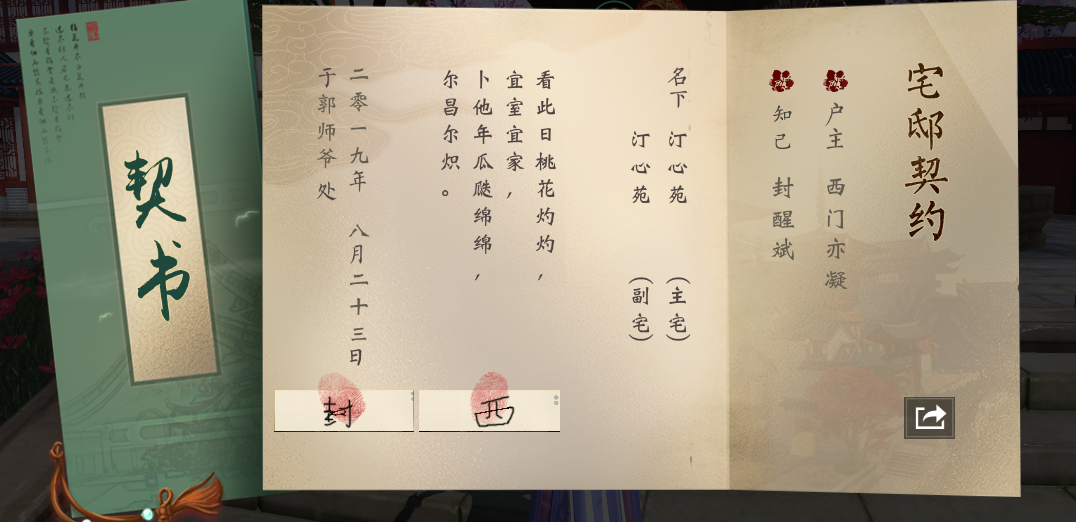 宅邸契约
户主 西门亦凝
知己 封醒斌
名下 汀心苑 （主宅）
汀心苑 （副宅）
看此日桃花灼灼，
宜室宜家，
卜他年瓜瓞绵绵，
尔昌尔炽。
二零一九年 八月二十三日
于郭师爷处
西
封
契书